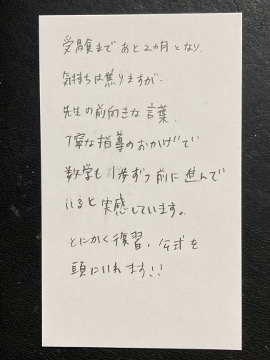 受験まであと2カ月となり、
気持ちは焦りますが、
先生の前向きな言葉、
丁寧な指導のおかげで
数学も1歩ずつ前に進んで
いると実感しています。
とにかく復習、公式を
頭にいれます!!